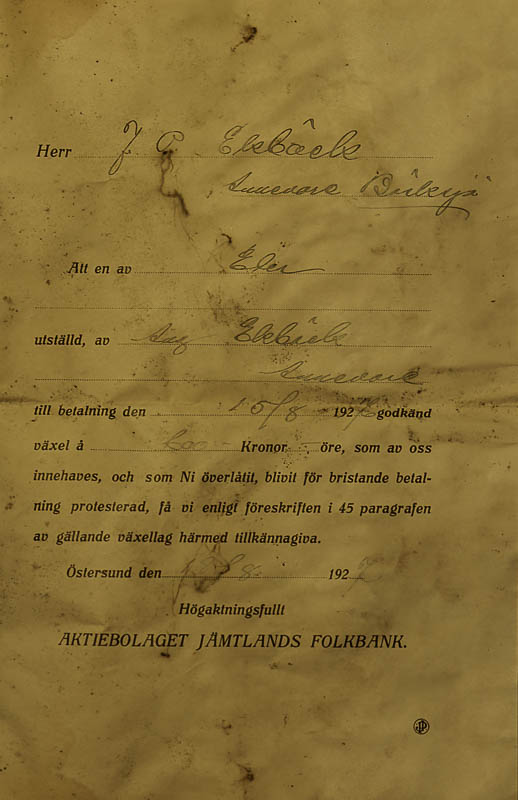 Herr J P Ekbäck
Annevare
Att en av Eder
utställd, av Aug Ekbäck
Annevare
till betalning den 15/8 192 godkänd
växel å 600 - Kronor - öre, som av oss
innehaves, och som Ni överlåtit, blivit för bristande betal-
ning protesterad, få vi enligt föreskriften i 45 paragrafen
av gällande växellag härmed tillkännagiva.
Östersund den /8 192
Högaktningsfullt
AKTIEBOLAGET JÄMTLANDS FOLKBANK.